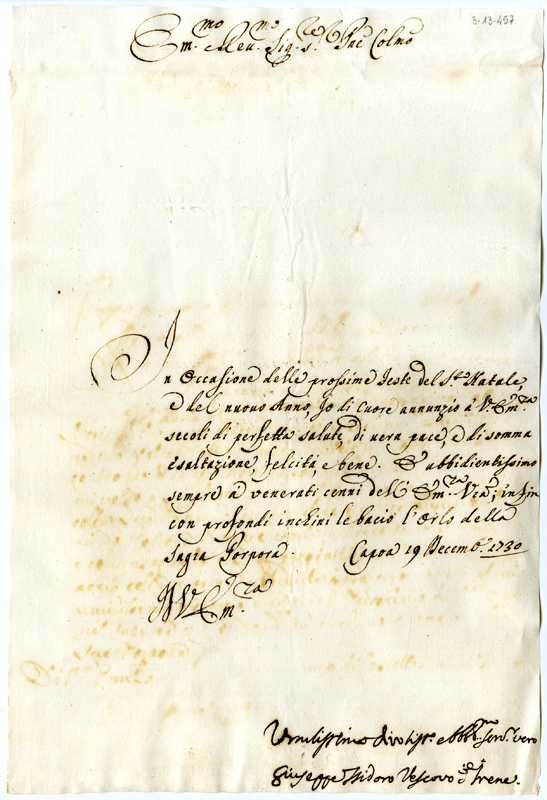 3-13-457
Em.mo Rev.mo Sig.r e P.ne Colmo
In Occasione delle prossime feste del S.to Natale,
e del nuovo Anno, Io di Cuore annunzio à V. Em.za
secoli di perfetta salute, di vera pace, e di somma
esaltazione, felicità, e bene. E abbidientissimo
sempre à venerati cenni dell' Em.za V.ra, in fin
con profondi inchini le bacio l'Orlo della
Sagra Porpora. Capoa 19 Decemb.e 1730
V. Em.za
Umilissimo divotiss.o e Obb.mo ser.e vero
Giuseppe Isidoro Vescovo